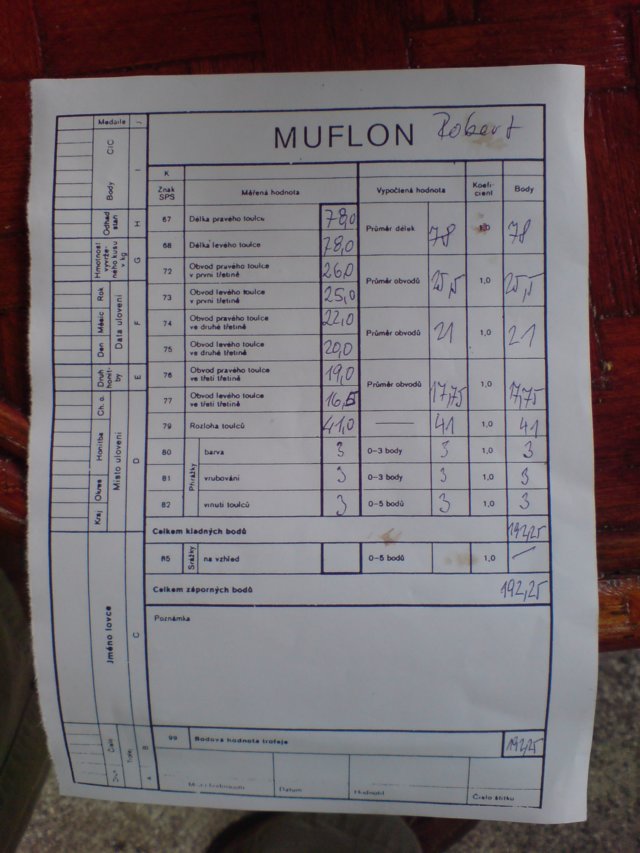 MUFLON Robert
K
Znak SPS Měřená hodnota Vypočtená hodnota Koefi-cient Body
67 Délka pravého toulce 78,0 Průměr délek 78 1,0 78
68 Délka levého toulce 78,0
72 Obvod pravého toulce v první třetině 26,0 Průměr obvodů 25,5 1,0 25,5
73 Obvod levého toulce v první třetině 25,0
74 Obvod pravého toulce ve druhé třetině 22,0 Průměr obvodů 21 1,0 21
75 Obvod levého toulce ve druhé třetině 20,0
76 Obvod pravého toulce ve třetí třetině 19,0 Průměr obvodů 17,75 1,0 17,75
77 Obvod levého toulce ve třetí třetině 16,5
79 Rozloha toulců 41,0 — 41 1,0 41
Přirážky
80 barva 3 0–3 body 3 1,0 3
81 vrubování 3 0–3 body 3 1,0 3
82 vinutí toulců 3 0–5 bodů 3 1,0 3
Celkem kladných bodů 192,25
85 Srážky na vzhled 0–5 bodů 1,0 —
Celkem záporných bodů 192,25
Poznámka
99 Bodová hodnota trofeje 192,25
Datum
Hodnotil
Číslo štítku
Medaile J
Body CIC I
Odhad stáří H
Hmotnost vyvrže-ného kusu v kg G
Den Měsíc Rok
Data ulovení F
Druh honit-by E
Kraj Okres Honitba Ch. o.
Místo ulovení D
Jméno lovce C
Číslo
B
A